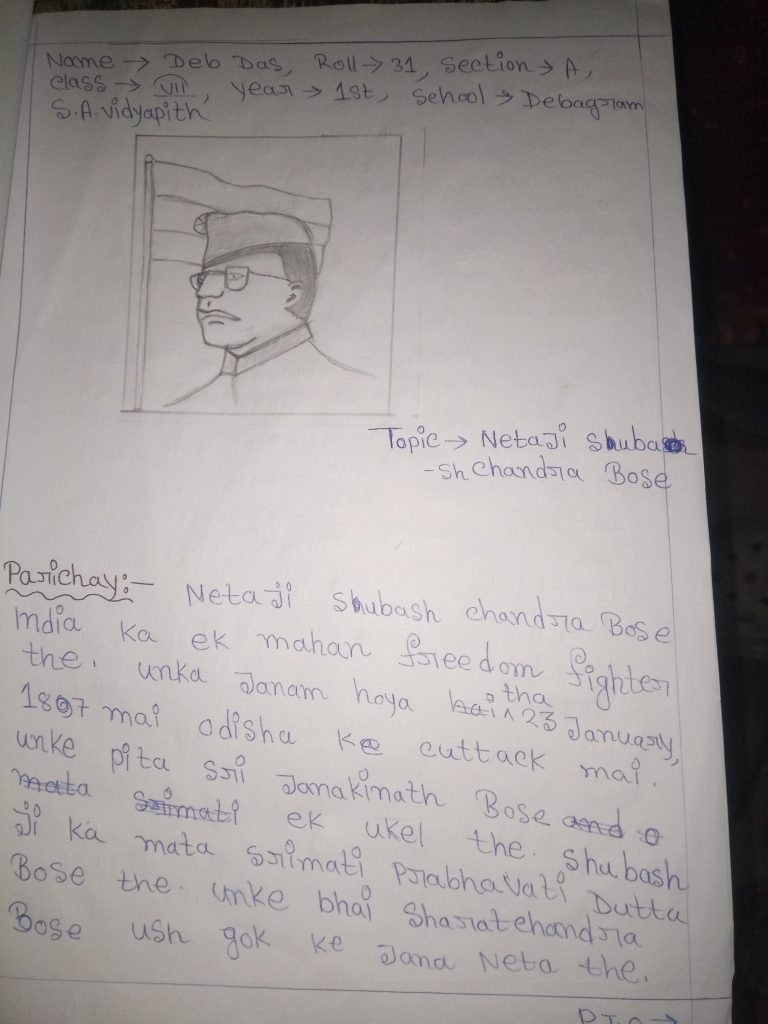 Name → Deb Das, Roll → 31, Section → A,
class → VII, year → 1st, School → Debagram
S.A. Vidyapith
Topic → Netaji Shuba
-sh Chandra Bose
Parichay:-
Netaji Shubash chandra Bose
India ka ek mahan freedom fighter
the. unka Janam hoya hai tha 23 January,
1897 mai odisha ke cuttack mai.
unke pita sri Janakinath Bose and
mata srimati ek ukel the. Shubash
Ji ka mata srimati Prabhavati Dutta
Bose the. unke bhai Sharatchandra
Bose ush gok ke Jana Neta the.
P.T.O →